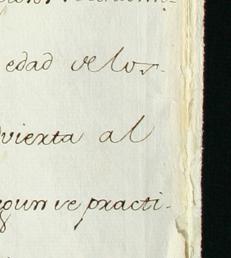 edad de los
vierta al
segun se practi-